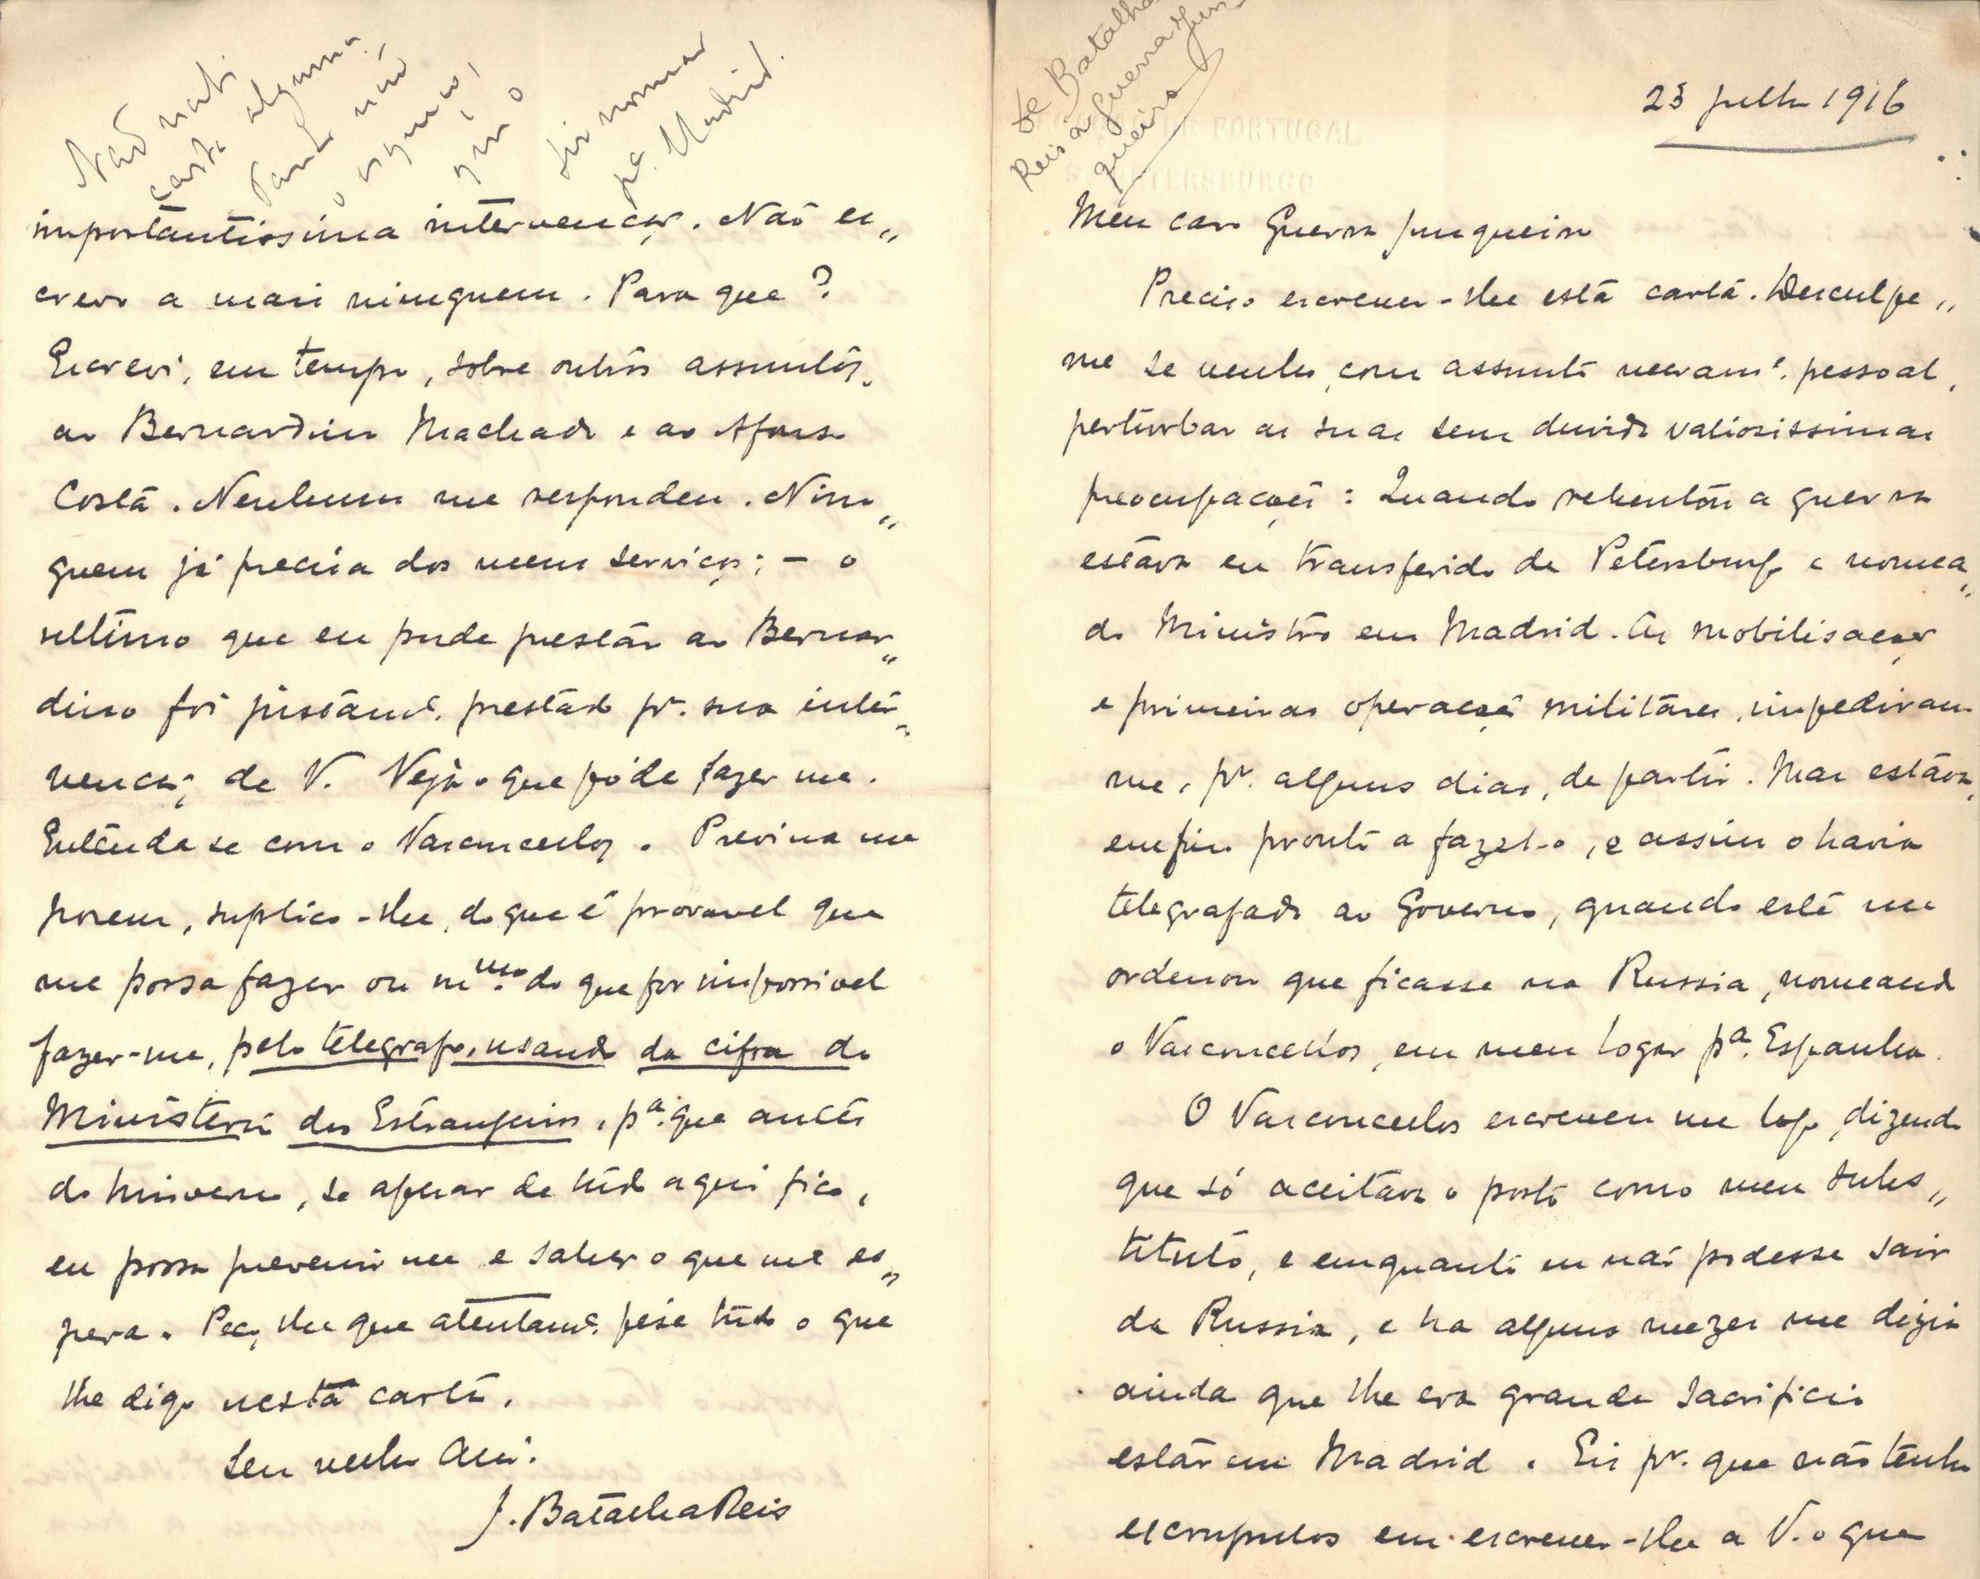 De Batalha
Reis a Guerra Jun
queiro
DE PORTUGAL
PETERSBURGO
23 julho 1916
Meu caro Guerra Junqueiro
Preciso escrever-lhe esta carta. Desculpe,,
me se venho, com assunto meram.e pessoal,
perturbar as suas sem duvida valiosissimas
preocupações: Quando rebentou a guerra
estava eu transferido de Petersburgo e nomea,,
do Ministro em Madrid. As mobilisações
e primeiras operações militares, impediram
me, pr. alguns dias, de partir. Mas estava,
enfim pronto a fazel-o, e assim o havia
telegrafado ao Governo, quando este me
ordenou que ficasse na Russia, nomeando
o Vasconcellos, em meu logar pa. Espanha.
O Vasconcellos escreveu me logo, dizendo
que só aceitava o posto como meu subs,,
tituto, e emquanto eu não podesse sair
da Russia, e ha alguns mezes me dizia
ainda que lhe era grande sacrificio
estar em Madrid. Eis pr. que não tenho
escrupulos em escrever-lhe a V. o que
Não
carta alguma.
para não
o
que o
nomear
pa. Madrid.
importantissima intervenção. Não es,,
crevo a mais ninguem. Para que?
Escrevi, em tempo, sobre outros assuntos,
ao Bernardino Machado e ao Afonso
Costa. Nenhum me respondeu. Nin,,
guem já precisa dos meus serviços; - o
ultimo que eu pude prestar ao Bernar,,
dino foi justam.e prestado pr. sua inter,,
venção; de V. Veja o que póde fazer me.
Entenda se com o Vasconcellos. Previna me
porem, suplico-lhe, do que é provavel que
me possa fazer ou m.mo do que for impossivel
fazer-me, pelo telegrafo, usando da cifra do
Ministerio dos Estrangeiros, pa. que antes
do hinverno, se apesar de tudo aqui fico,
eu possa prevenir me e saber o que me es,,
pera. Peço lhe que atentam.e pese tudo o que
lhe digo nesta carta.
Seu velho Am.
J. Batalha Reis